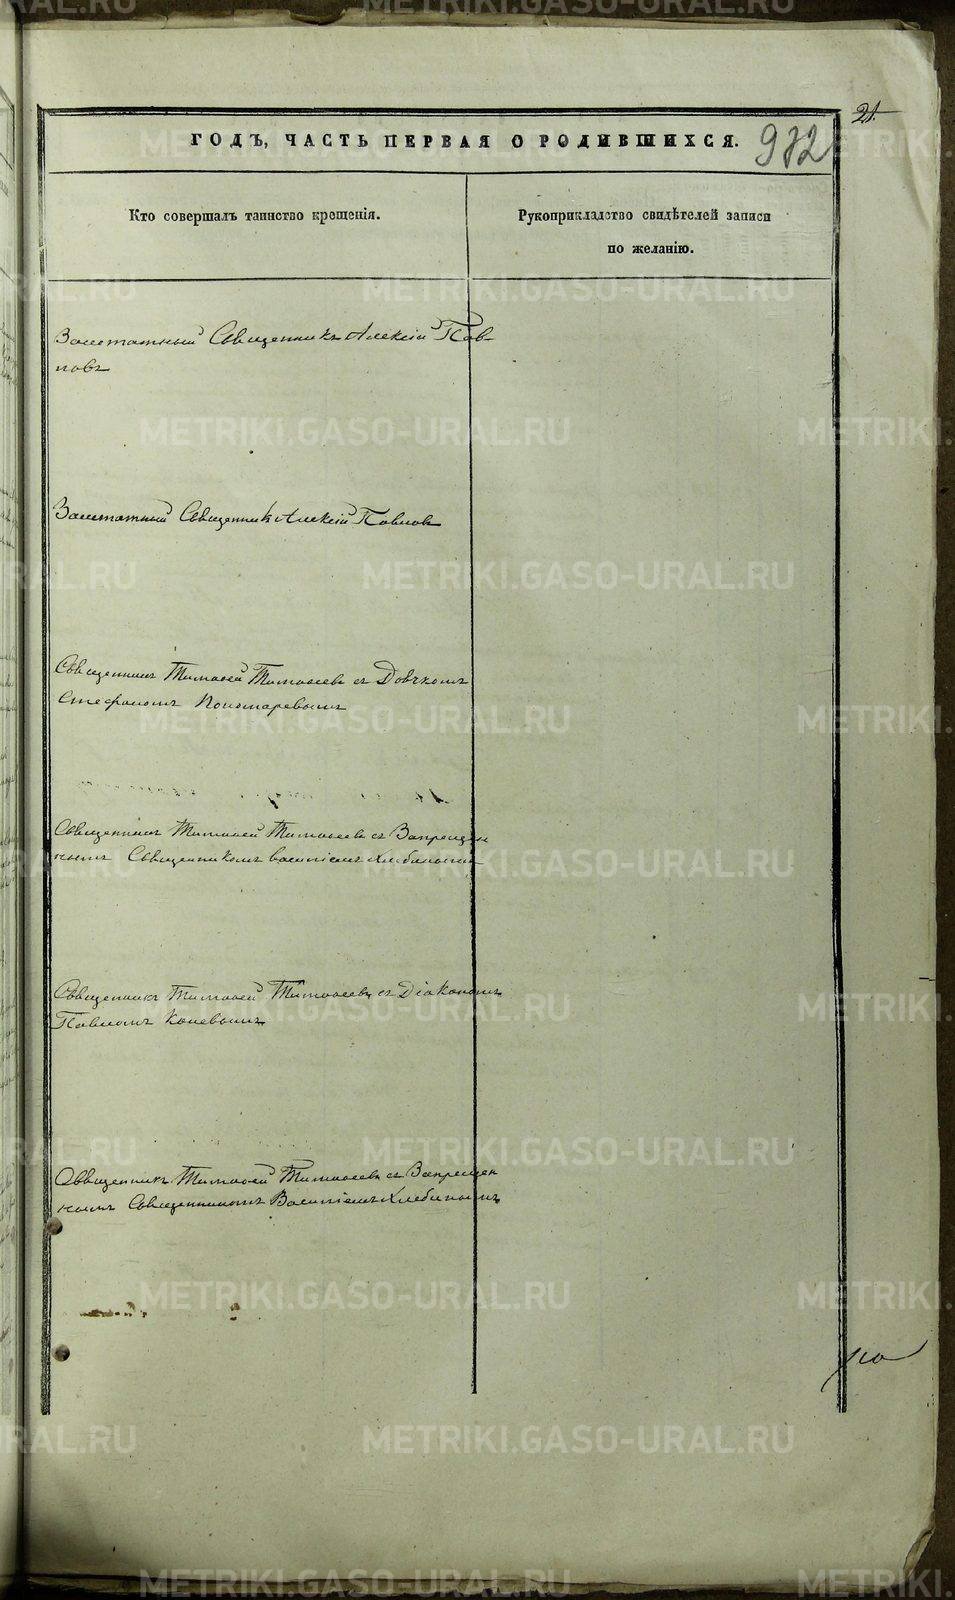 21.
ГОДЪ, ЧАСТЬ ПЕРВАЯ О РОДИВШИХСЯ.
972
Кто совершалъ таинство крещенія.
Рукоприкладство свидѣтелей записи
по желанію.
Заштатный Священникъ Алексій Пав-
ловъ
Заштатный Священникъ Алексій Павловъ
Священникъ Тимоѳей Тимоѳеевъ съ Дьячкомъ
Стефаномъ Пономаревымъ
Священникъ Тимоѳей Тимоѳеевъ съ Запрещен
нымъ Священникомъ Василіемъ Хлебинымъ
Священникъ Тимоѳей Тимоѳеевъ съ Діакономъ
Павломъ Коневымъ
Священникъ Тимоѳей Тимоѳеевъ съ Запрещен
нымъ Священникомъ Василіемъ Хлебинымъ
METRIKI.GASO-URAL.RU